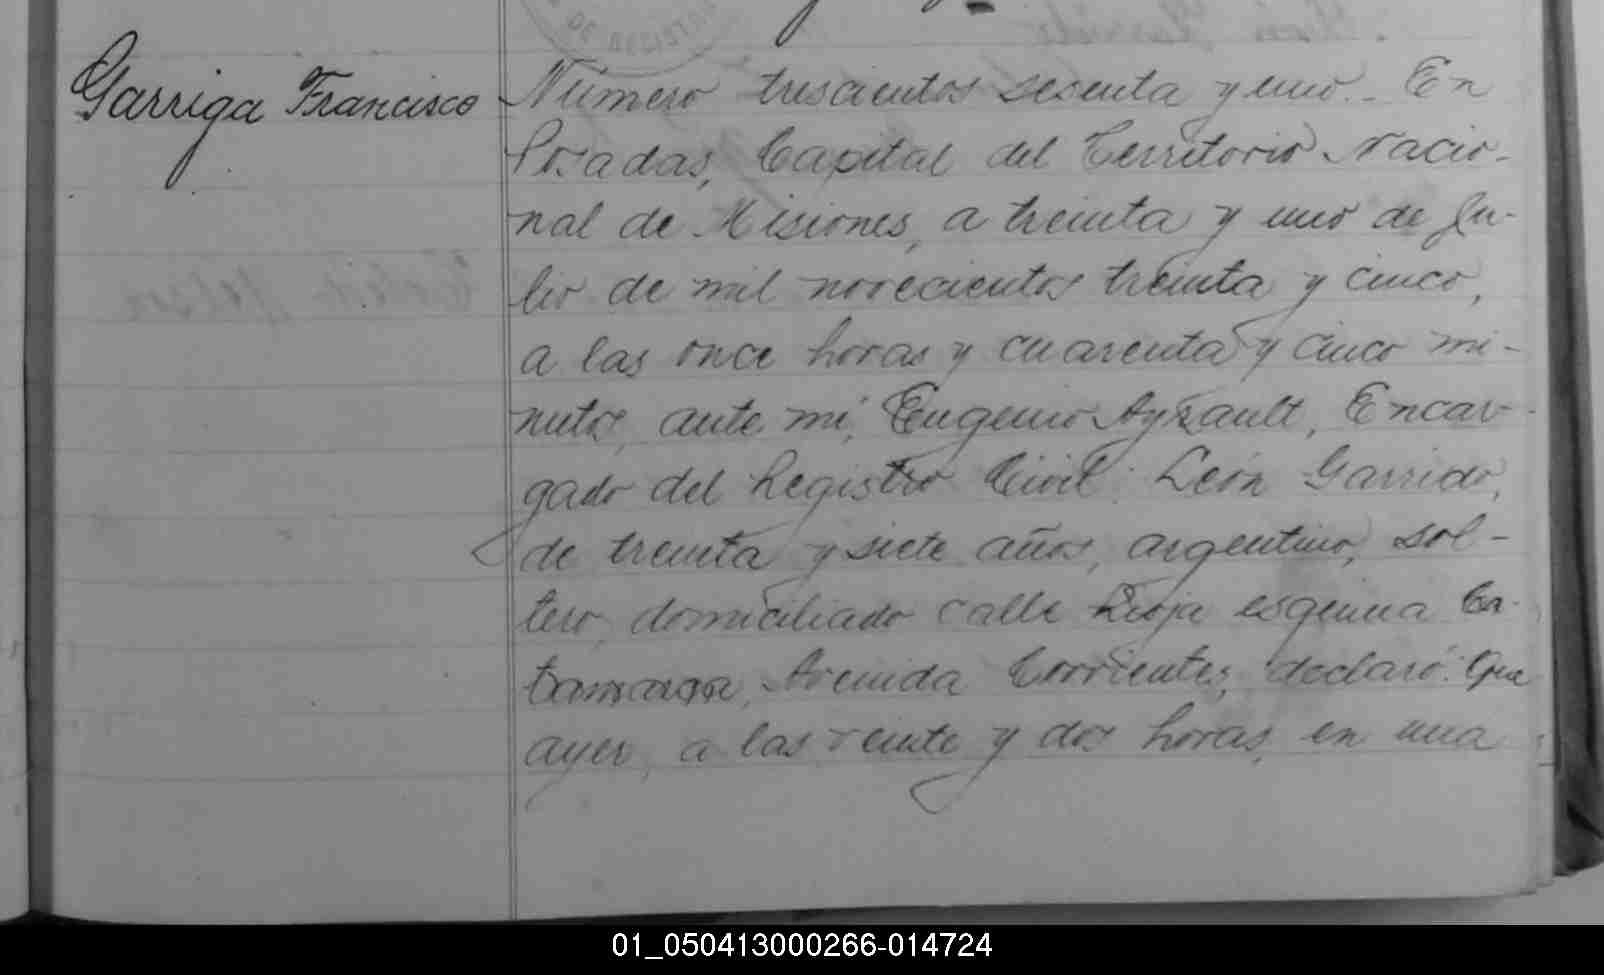 Garriga Francisco
Número trescientos sesenta y uno.- En
Posadas, Capital del Territorio Nacio-
nal de Misiones, a treinta y uno de Ju-
lio de mil novecientos treinta y cinco,
a las once horas y cuarenta y cinco mi-
nutos, ante mí, Eugenio Ayrault, Encar-
gado del Registro Civil: León Garrido,
de treinta y siete años, argentino, sol-
tero, domiciliado calle Rioja esquina Ca-
tamarca, Avenida Corrientes, declaró: Que
ayer, a las veinte y dos horas, en una
01_050413000266-014724